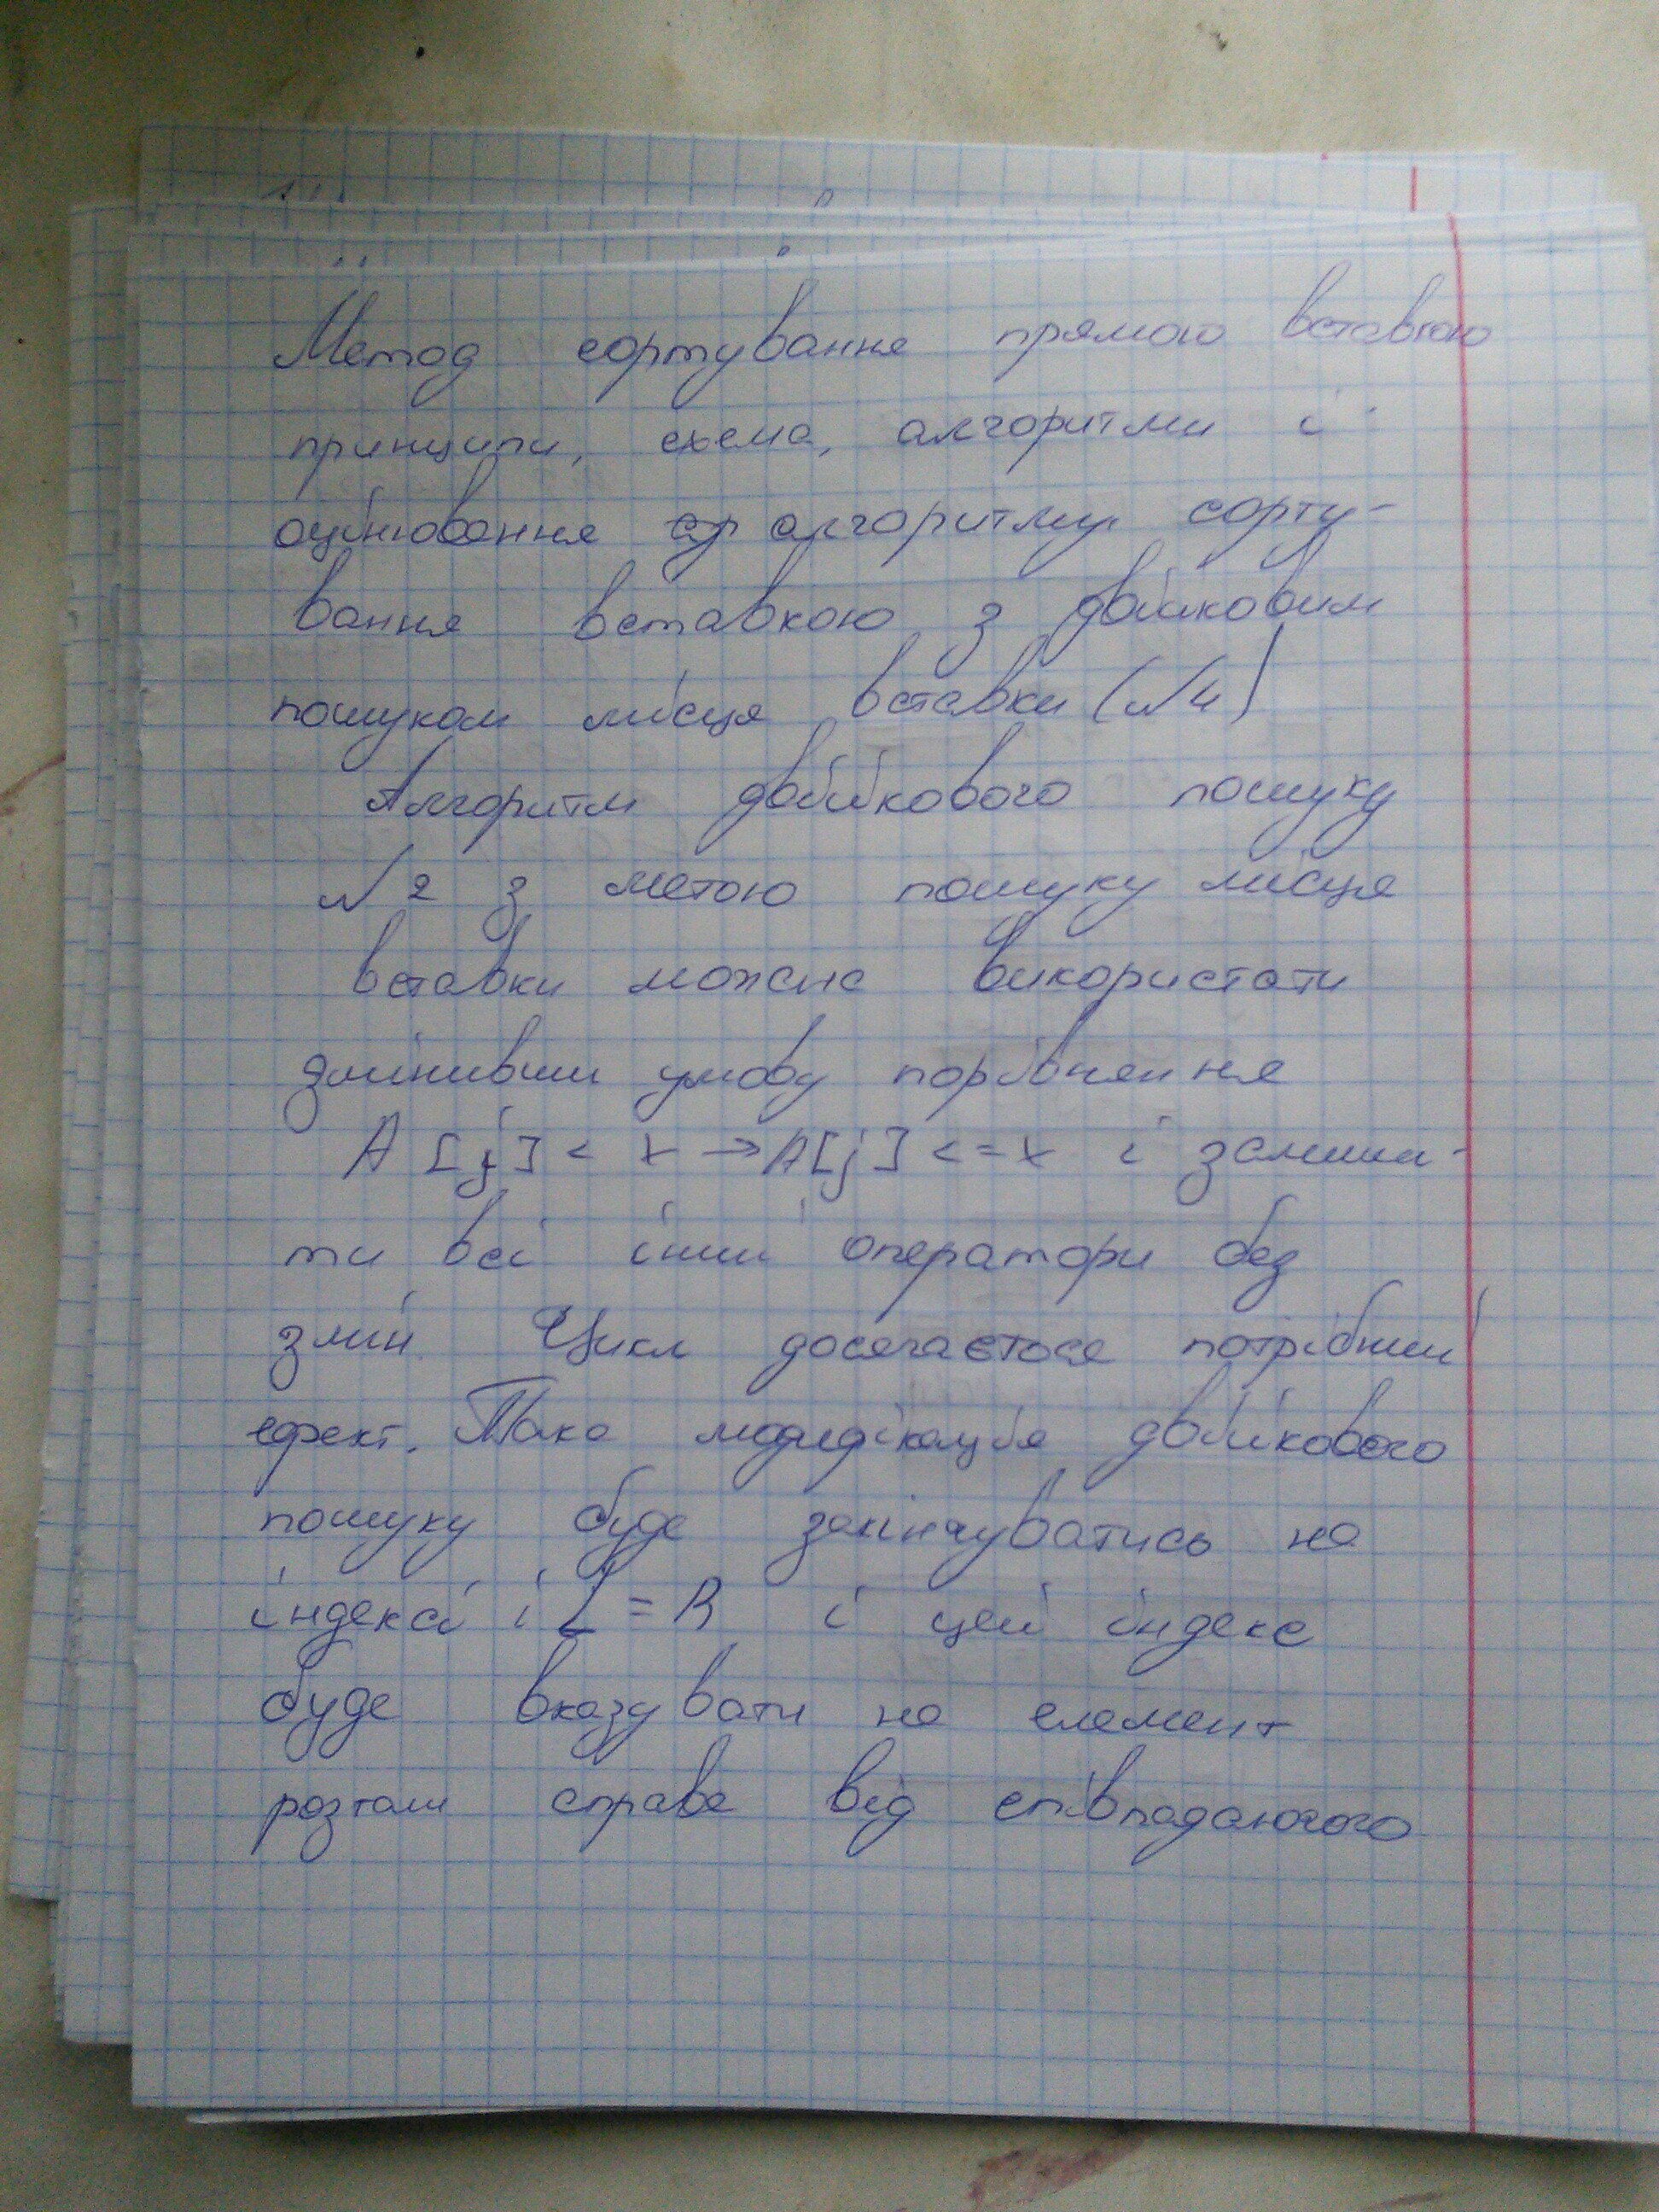 Метод сортування прямою вставкою
принципи, схема, алгоритми і
оцінювання алгоритму сорту-
вання вставкою з двійковим
пошуком місця вставки (№4)
Алгоритм двійкового пошуку
№2 з метою пошуку місця
вставки можна використати
змінивши умову порівняння
A [j] < x → A[j] <= x і залиши-
ти всі інші оператори без
змін. Цикл досягається потрібний
ефект. Така модифікація двійкового
пошуку буде закінчуватись на
індексі і L = R і цей індекс
буде вказувати на елемент
розташ справа від співпадаючого